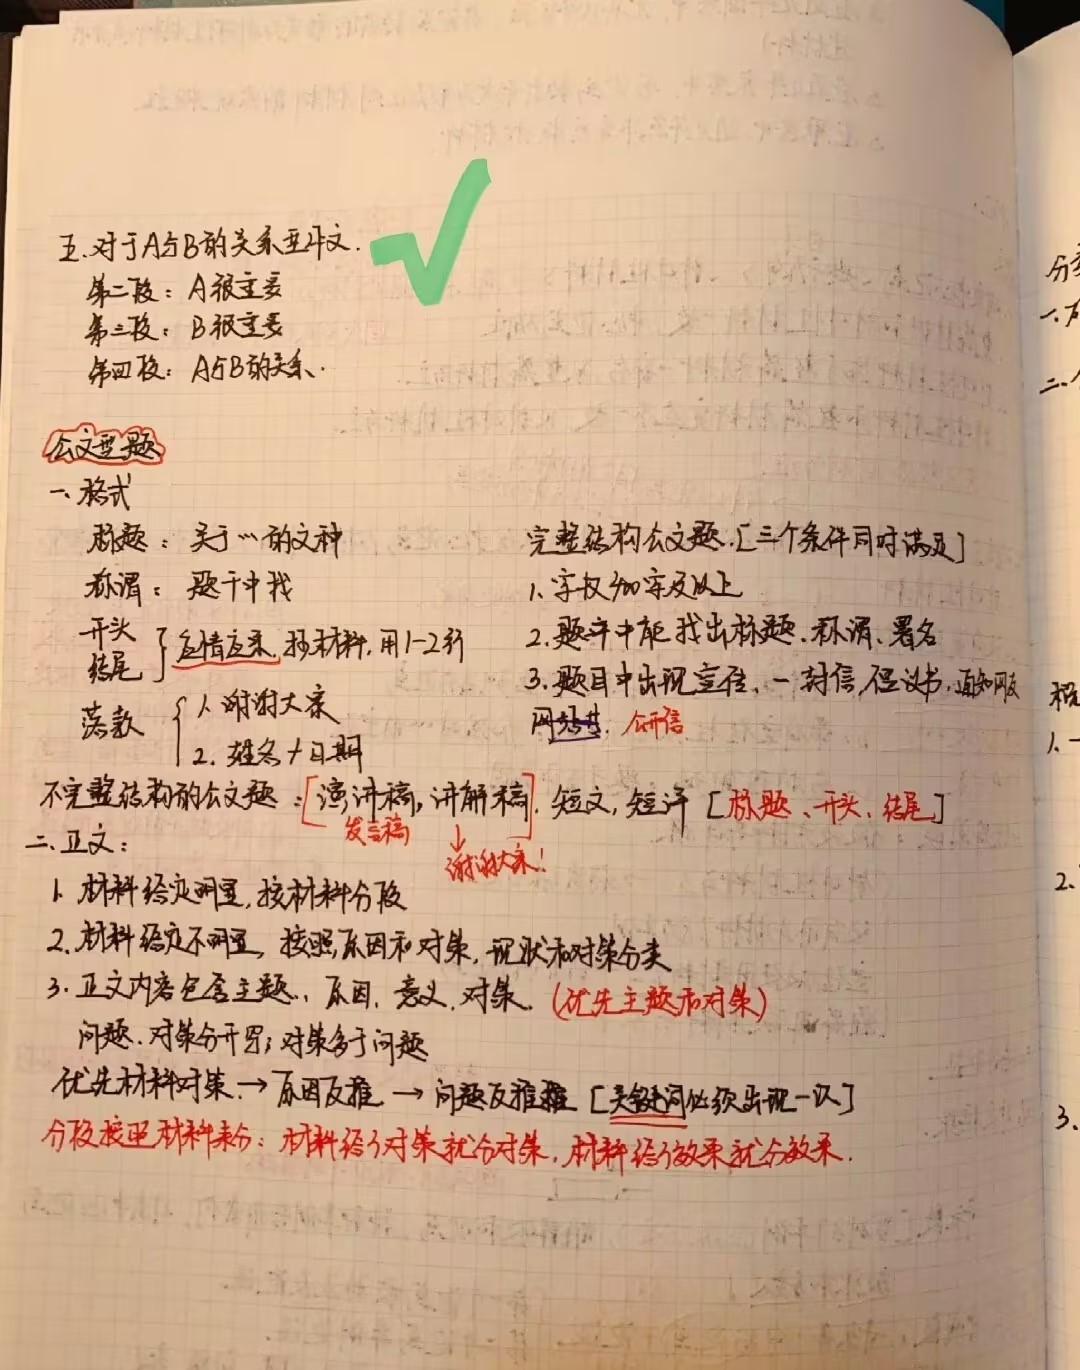 五.对于A与B的关系型作文.
第二段：A很重要
第三段：B很重要
第四段：A与B的关系.
公文型题
一、格式
标题：关于…的文种
称谓：题干中找
开头
结尾
应情应景.抄材料,用1-2行
落款
1.谢谢大家
2.姓名+日期
完整结构公文题.[三个条件同时满足]
1.字数400字及以上
2.题干中能找出标题、称谓、署名
3.题目中出现宣传、一封信,倡议书,通知网友
公开信
不完整结构的公文题：[演讲稿,讲解稿].短文,短评[标题、开头、结尾]
发言稿
↓
谢谢大家!
二.正文:
1.材料给定明显,按材料分段
2.材料给定不明显,按照原因和对策,现状和对策分类
3.正文内容包含主题、原因、意义、对策.(优先主题和对策)
问题、对策分开写;对策多于问题
优先材料对策→原因反推→问题反推[关键词必须出现一以]
分段按照材料来分：材料给了对策就分对策,材料给了效果就分效果.